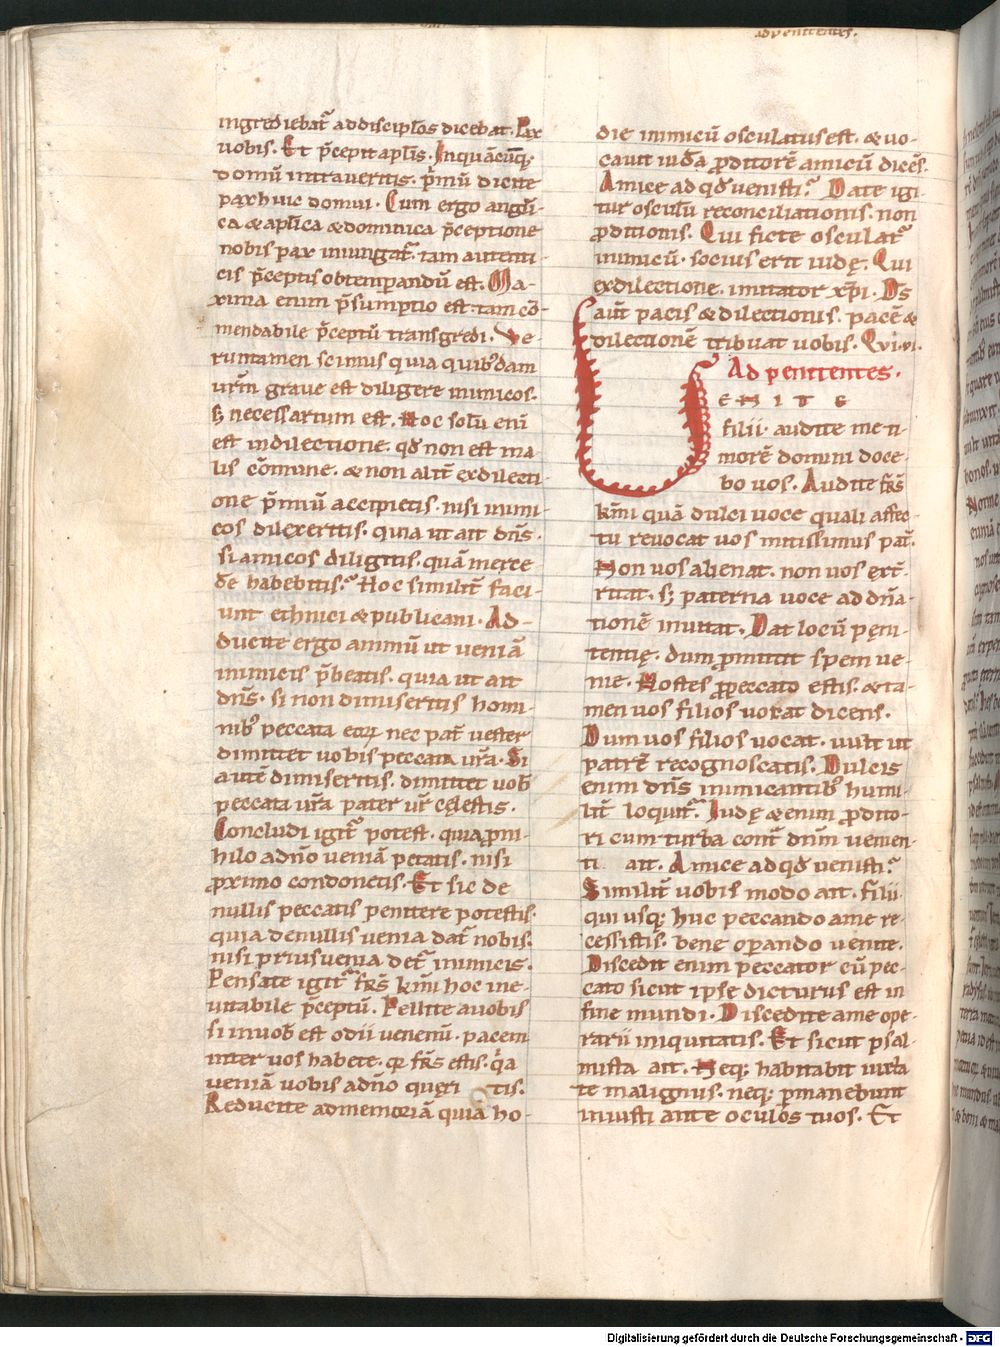 ad penitentes.
ingrediebat᷑ ad discipl̅os dicebat. Pax
uobis. Et p̅cepit apl̅is. Inquācūq;
domū intraueritis. p̅mū dicite
pax huic domui. Cum ergo angl̅i-
ca & apl̅ica & dominica p̅ceptione
nobis pax iniungat᷑. tam autenti-
cis p̅ceptis obtemꝑandū est. Ma-
xima enim p̅sumptio est tam cō-
mendabile p̅ceptū transgredi. Ve-
runtamen scimus quia quibꝰdam
ur̅m graue est diligere inimicos.
sꝫ necessarium est. Hoc solū enī
est in dilectione. qđ non est ma-
lis cōmune. & non alit̅ ex dilecti-
one p̅miū accipietis. nisi inimi-
cos dilexeritis. quia ut ait dn̅s.
si amicos diligitis. quā merce-
de habebitis? Hoc similit̅ faci-
unt ethnici & publicani. Ad-
ducite ergo animū ut ueniā
inimicis p̅beatis. quia ut ait
dn̅s. si non dimiseritis homi-
nibꝰ peccata eoꝝ nec pat̅ uester
dimittet uobis peccata ur̅a. Si
autē dimiseritis. dimittet uob̅
peccata ur̅a pater ur̅ cęlestis.
Concludi igit᷑ potest. quia ꝓni-
hilo a dn̅o ueniā petatis. nisi
ꝓximo condonetis. Et sic de
nullis peccatis penitere potestis.
quia de nullis uenia dat᷑ nobis.
nisi prius uenia det᷑ inimicis.
Pensate igit᷑ fr̅s k̅mi hoc ine-
uitabile p̅ceptū. Pellite a uobis
si in uob̅ est odii uenenū. pacem
inter uos habete. qꝛ fr̅s estis. q̓a
ueniā uobis a dn̅o quęri tis.
Reducite ad memoriā quia ho-
die inimicū osculatus est. & uo-
cauit iuđa ꝓditorē amicū dicēs.
Amice ad qđ uenisti? Date igi-
tur osculū reconciliationis. non
ꝓditionis. Qui ficte osculat᷑
inimicū. socius erit iudę. Qui
ex dilectione. imitator xp̅i. Ds̅
aut̅ pacis & dilectionis. pacē &
dilectionē tribuat uobis. Qui.ui.
Ad penitentes.
VENITE
filii. audite me ti-
morē domini doce-
bo uos. Audite fr̅s
k̅mi quā dulci uoce quali affec-
tu reuocat uos mitissimus pat̅.
Non uos alienat. non uos ext̅-
ritat. sꝫ paterna uoce ad dn̅a-
tionē inuitat. Dat locū pęni-
tentię. dum ꝓmittit spem ue-
nie. Hostes ꝓ peccato estis. & ta-
men uos filios uocat dicens.
Dum uos filios uocat. uult ut
patrē recognoscatis. Dulcis
enim dn̅s inimicantibꝰ humi-
lit̅ loquit᷑. Iudę & enim ꝓdito-
ri cum turba cont̅ dn̅m uenien-
ti ait. Amice ad qđ uenisti?
Similit̅ uobis modo ait. filii.
qui usq; huc peccando a me re-
cessistis. bene oꝑando uenite.
Discedit enim peccator cū pec-
cato sicut ipse dicturus est in
fine mundi. Discedite a me ope-
rarii iniquitatis. Et sicut psal-
mista ait. Neq; habitabit iuxta
te malignus. neq; ꝑmanebunt
iniusti ante oculos tuos. Et
Digitalisierung gefördert durch die Deutsche Forschungsgemeinschaft - DFG